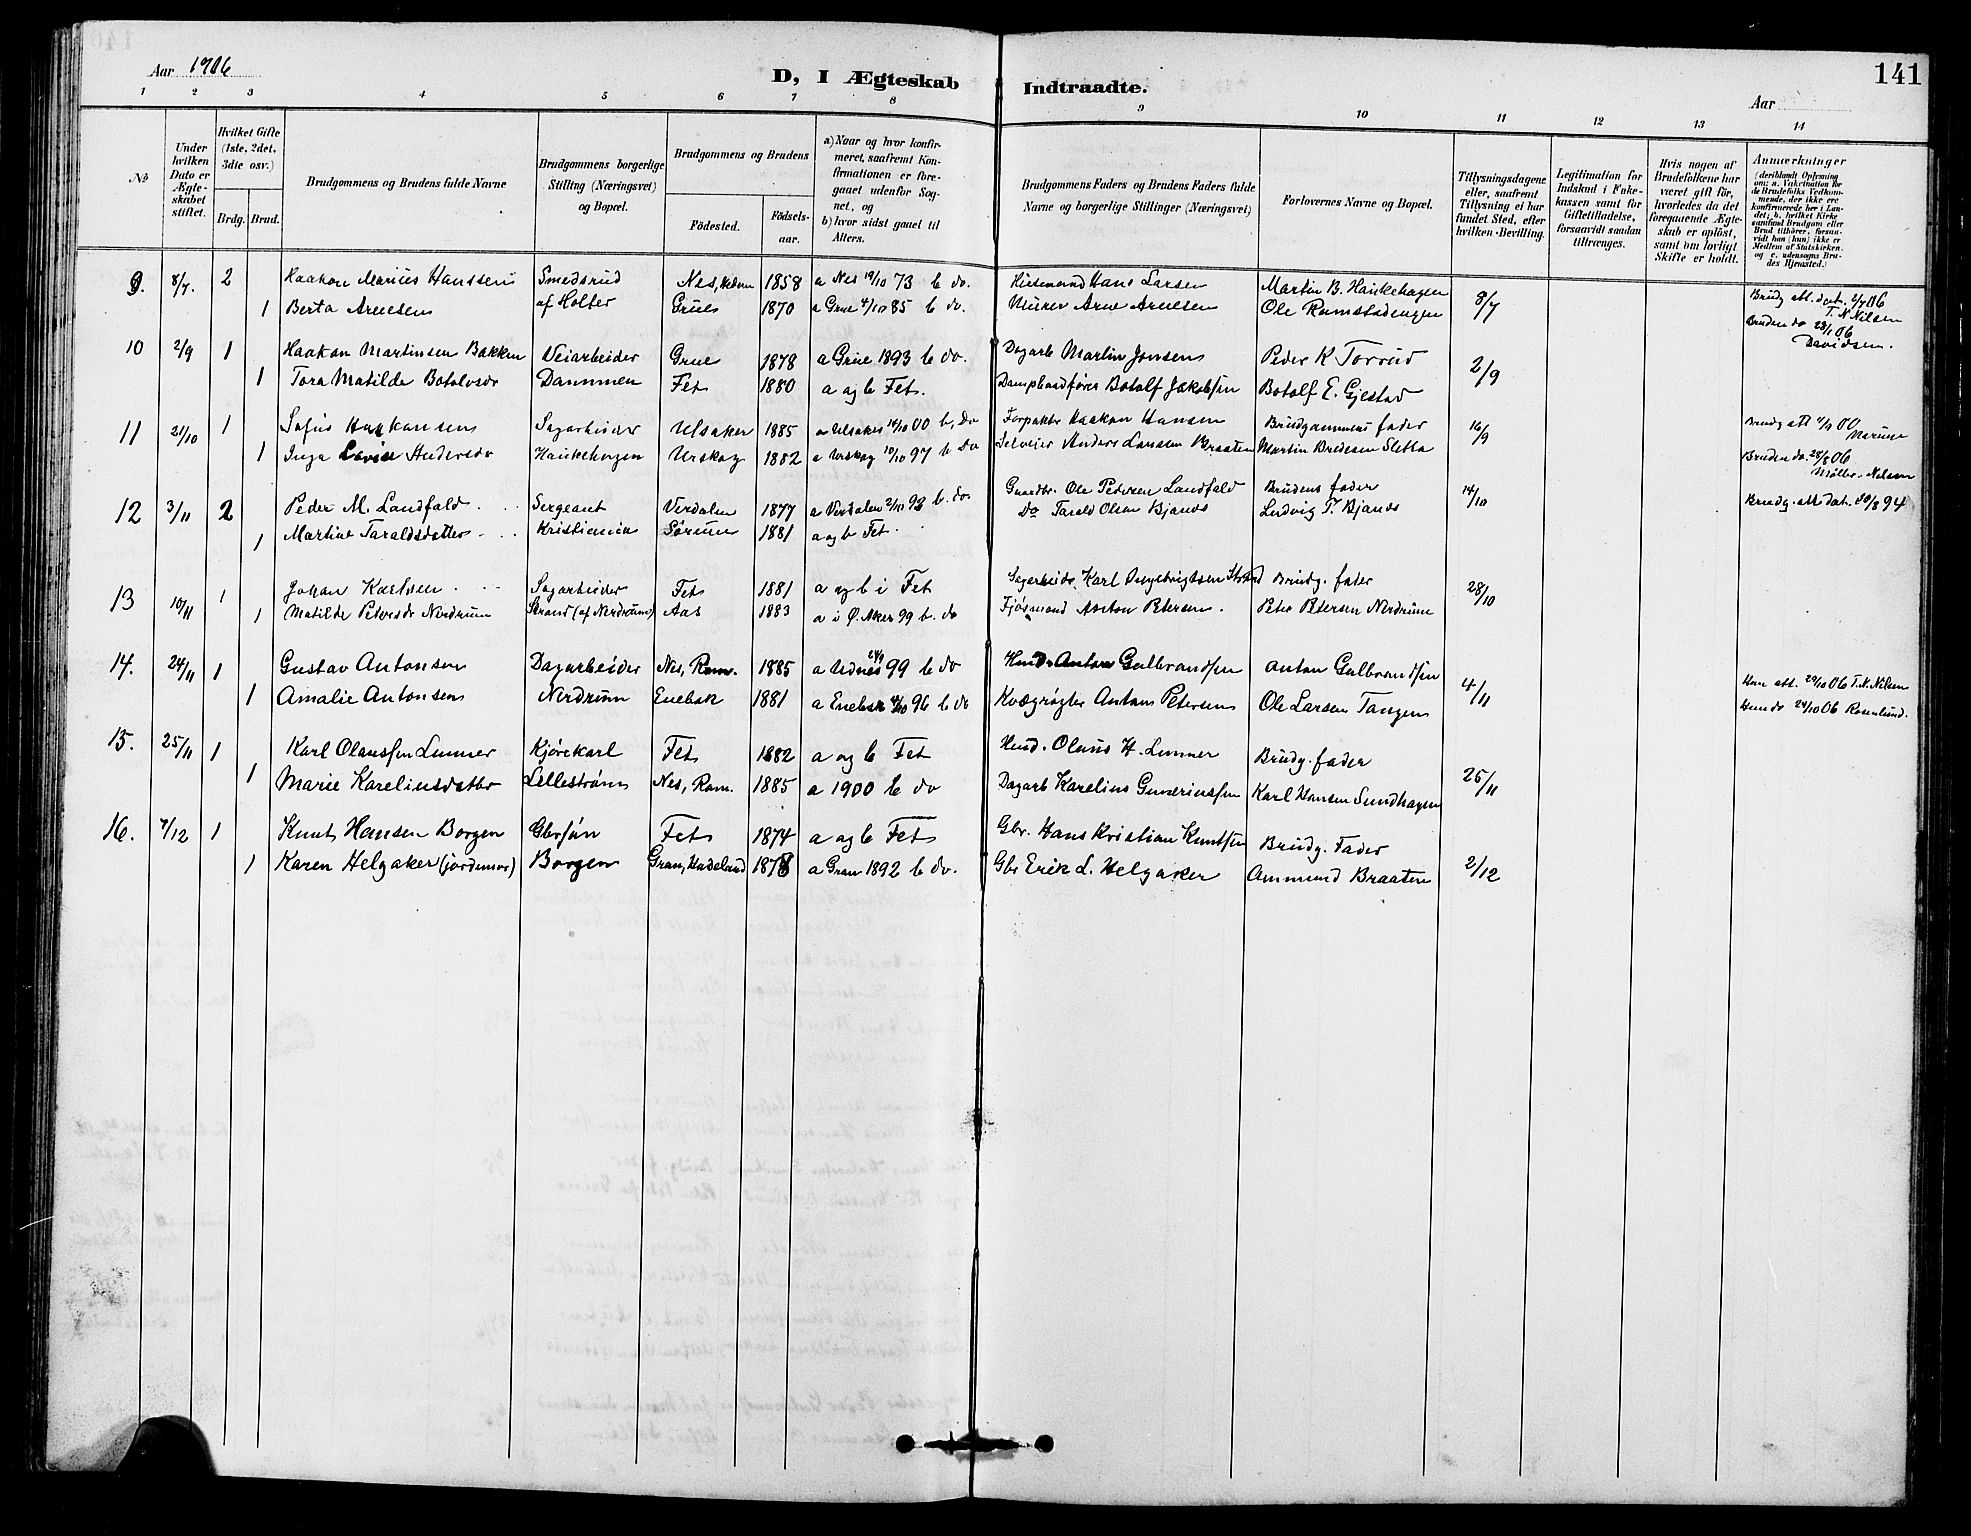 Aar 1906
D, I Ægteskab Indtraadte.
141
Aar
1 2 3 4 5 6 7 8 9 10 11 12 13 14
No
Under hvilken Dato er Ægteskabet stiftet.
Hvilket Gifte (1ste, 2det, 3die osv.)
Brdg. Brud.
Brudgommens og Brudens fulde Navne
Brudgommens borgerlige Stilling (Næringsvei) og Bopæl.
Brudgommens og Brudens
Fødested. Fødselsaar.
a) Naar og hvor konfirmeret, saafremt Konfirmationen er foregaaet udenfor Sognet, og b) hvor sidst gaaet til Alters.
Brudgommens Faders og Brudens Faders fulde Navne og borgerlige Stillinger (Næringsvei)
Forlovernes Navne og Bopæl.
Tillysningsdagene eller, saafremt Tillysning ei har fundet Sted, efter hvilken Bevilling.
Legitimation for Indskud i Enkekassen samt for Giftetilladelse, forsaavidt saadan tiltrænges.
Hvis nogen af Brudefolkene har været gift før, hvorledes da det foregaaende Ægteskab er opløst, samt om lovligt Skifte er holdt.
Anmærkninger (deriblandt Oplysning om: a. Vakcination for de Brudefolks Vedkommende, der ikke ere konfirmerede her i Landet; b. hvilket Kirkesamfund Brudgom eller Brud tilhører, forsaavidt han (hun) ikke er Medlem af Statskirken, og c. udensogns Brudes Hjemsted.)
9. 8/7 2 Haakon Marius Hanssen Smedsrud Nes, Hedm 1858 a Nes 19/10 73 b do. Husmand Hans Larsen Martin B. Haukehagen 8/7 Brudg att. dat. 2/7 06 T. N. Nilsen
1 Berta Arnesen af Holter Grue 1870 a Grue 4/10 85 b do. Murer Arne Arnesen Ole Ramstadengen Bruden do 28/1 06 Davidsen.
10 2/9 1 Haakon Martinsen Bakken Veiarbeider Grue 1878 a Grue 1893 b do. Dagarb Martin Jonsen Peder K Torrud 2/9
1 Tora Matilde Botolvsdr Dammen Fet 1880 a og b Fet. Dampbaadfører Botolf Jakobsen Botolf E. Gjestad
11 21/10 1 Sofus Haakansen Sagarbeider Ulsaker 1885 a Ulsaker 14/10 00 b. do Forpakter Haakon Hansen Brudgommens fader 16/9 Brudg att 4/9 00
1 Inga Lovise Andersdr Haukehagen Urskog 1882 a Urskog 10/10 97 b do Selveier Anders Larssen Braaten Martin Bredesen Sletta Bruden do. 28/8 06 Møller-Nilsen
12 3/11 2 Peder M. Landfald Sergeant Verdalen 1877 a Verdalen 2/10 92 b. do Gaardbr. Ole Pedersen Landfald Brudens fader 14/10 Brudg. att dat. 20/8 94
1 Martine Taraldsdatter Kristiania Sørum 1881 a og b Fet. Do Tarald Olsen Bjanes Ludvig T. Bjanes
13 10/11 1 Johan Karlsen Sagarbeider Fet 1881 a og b i Fet Sagarbeider Karl Ingebrigtsen Strand Brudg. fader 28/10
1 Matilde Pedersdr Nordrum Strand (af Nerdrum) Aas 1883 a i Ø. Aker 99 b. do Fjøsmand Anton Petersen. Peter Petersen Nerdrum
14. 24/11 1 Gustav Antonsen Dagarbeider Nes, Rom. 1885 a Udnes 24/9 99 b do Husm. Anton Gulbrandsen Anton Gulbrandsen 4/11 Han att. 29/10 06 T. N. Nilsen
1 Amalie Antonsen Nerdrum Enebak 1881 a Enebak 4/10 96 b do Kvægrøgter Anton Petersen Ole Larsen Tangen Hun do 24/10 06 Rosenlund.
15. 25/11 1 Karl Olaussen Lunner Kjørekarl Fet 1882 a og b Fet Husd. Olaus H. Lunner Brudg. fader 25/11
1 Marie Kareliusdatter Lillestrøm Nes, Rom. 1885 a 1900 b do Dagarb Karelius Gunerius sen Karl Hansen Sundhagen
16. 7/12 1 Knut Hansen Borgen Gbrsøn Fet 1874 a og b Fet Gbr. Hans Kristian Knutsen Brudg. Fader 2/12
1 Karen Helgaker (jordemor) Borgen Gran, Hadeland 1878 a Gran 1892 b do. Gbr Erik L. Helgaker Ammund Braaten